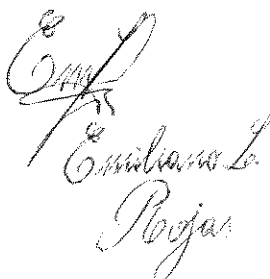 Emiliano L.
Rojas